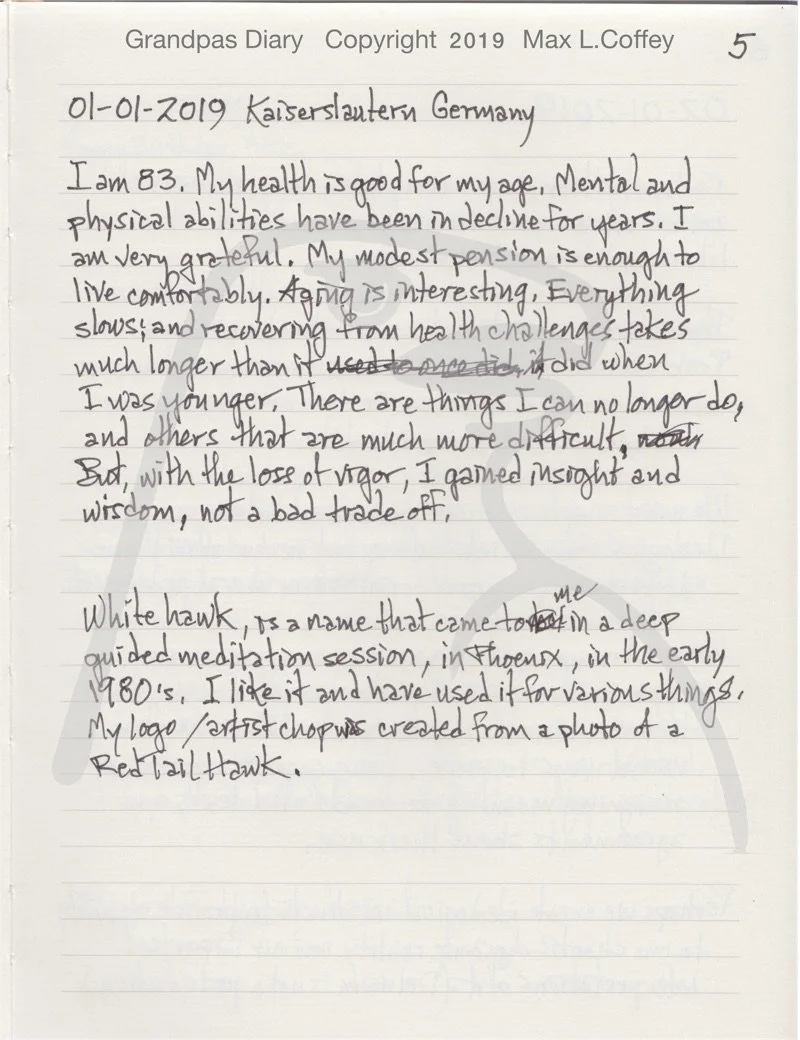 Grandpas Diary Copyright 2019 Max L.Coffey
5
01-01-2019 Kaiserslautern Germany
I am 83. My health is good for my age. Mental and
physical abilities have been in decline for years. I
am very grateful. My modest pension is enough to
live comfortably. Aging is interesting. Everything
slows; and recovering from health challenges takes
much longer than it used to once did, it did when
I was younger. There are things I can no longer do,
and others that are much more difficult,
But, with the loss of vigor, I gained insight and
wisdom, not a bad trade off.
me
White hawk, is a name that came to in a deep
guided meditation session, in Phoenix, in the early
1980's. I like it and have used it for various things.
My logo / artist chop was created from a photo of a
Red Tail Hawk.